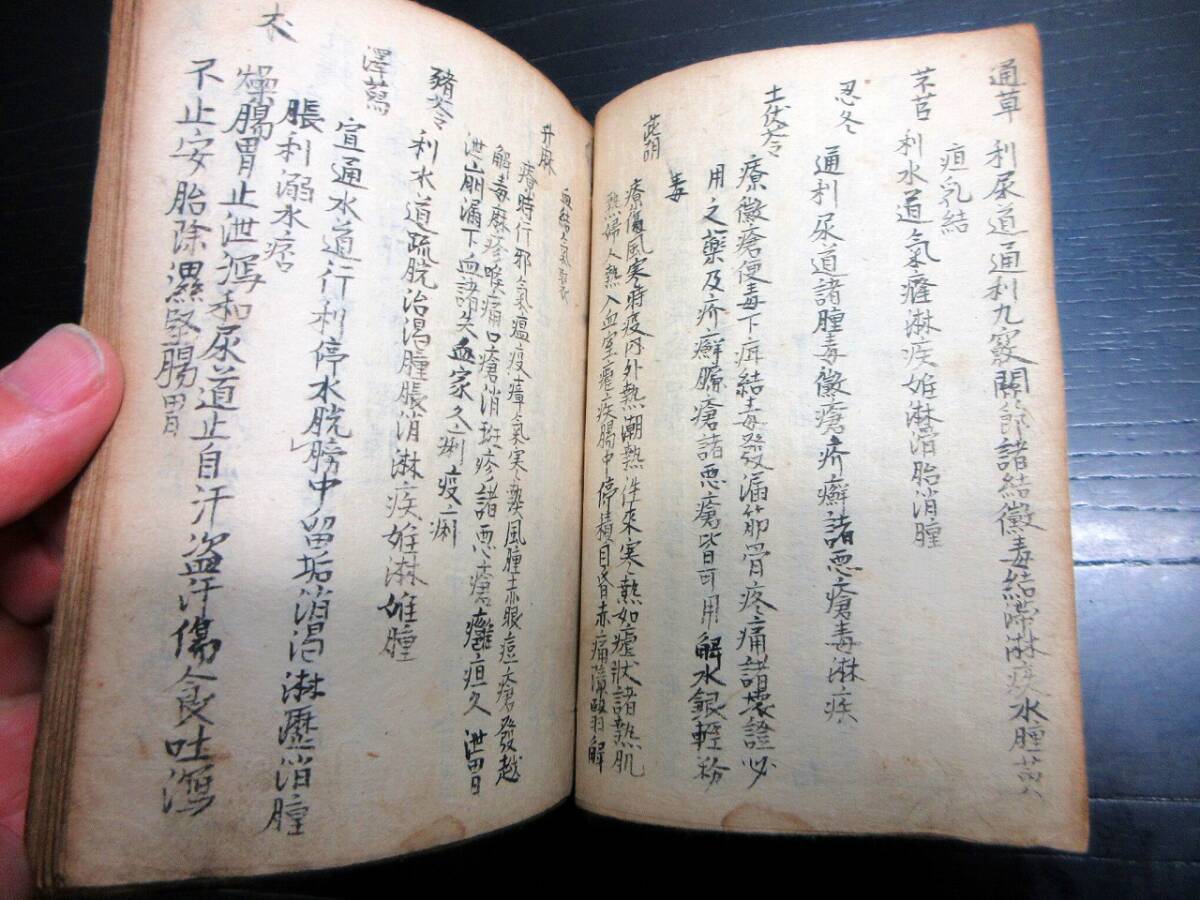 通草
利尿道通利九竅關節諸結黴毒結滞淋疾水腫黄
疸乳結
芣苢
利水道氣癃淋疾难淋滑胎消腫
忍冬
通利尿道諸腫毒黴瘡疥癬諸悪瘡毒淋疾
土茯苓
療黴瘡便毒下疳結毒發漏筋骨疼痛諸壊證必
用之藥及疥癬臁瘡諸悪瘡皆可用解水銀輕粉
毒
茈胡
療傷風寒時疫内外熱潮熱徃来寒熱如瘧状諸熱肌
熱婦人熱入血室瘧疾腸中停積目昏赤痛障翳解
血結
升麻
療時行邪氣瘟疫瘴氣寒熱風腫赤眼痘瘡發越
解毒麻疹喉痛口瘡消斑疹諸悪瘡癰疽久泄胃
泄崩漏下血諸失血家久痢疫痢
豬苓
利水道疏脘治渇腫脹消淋疾难淋难腫
澤蕮
宣通水道行利停水脘膀中留垢消渇淋瀝消腫
脹利溺水痞
朮
燥腸胃止泄瀉和尿道止自汗盗汗傷食吐瀉
不止安胎除濕堅腸胃